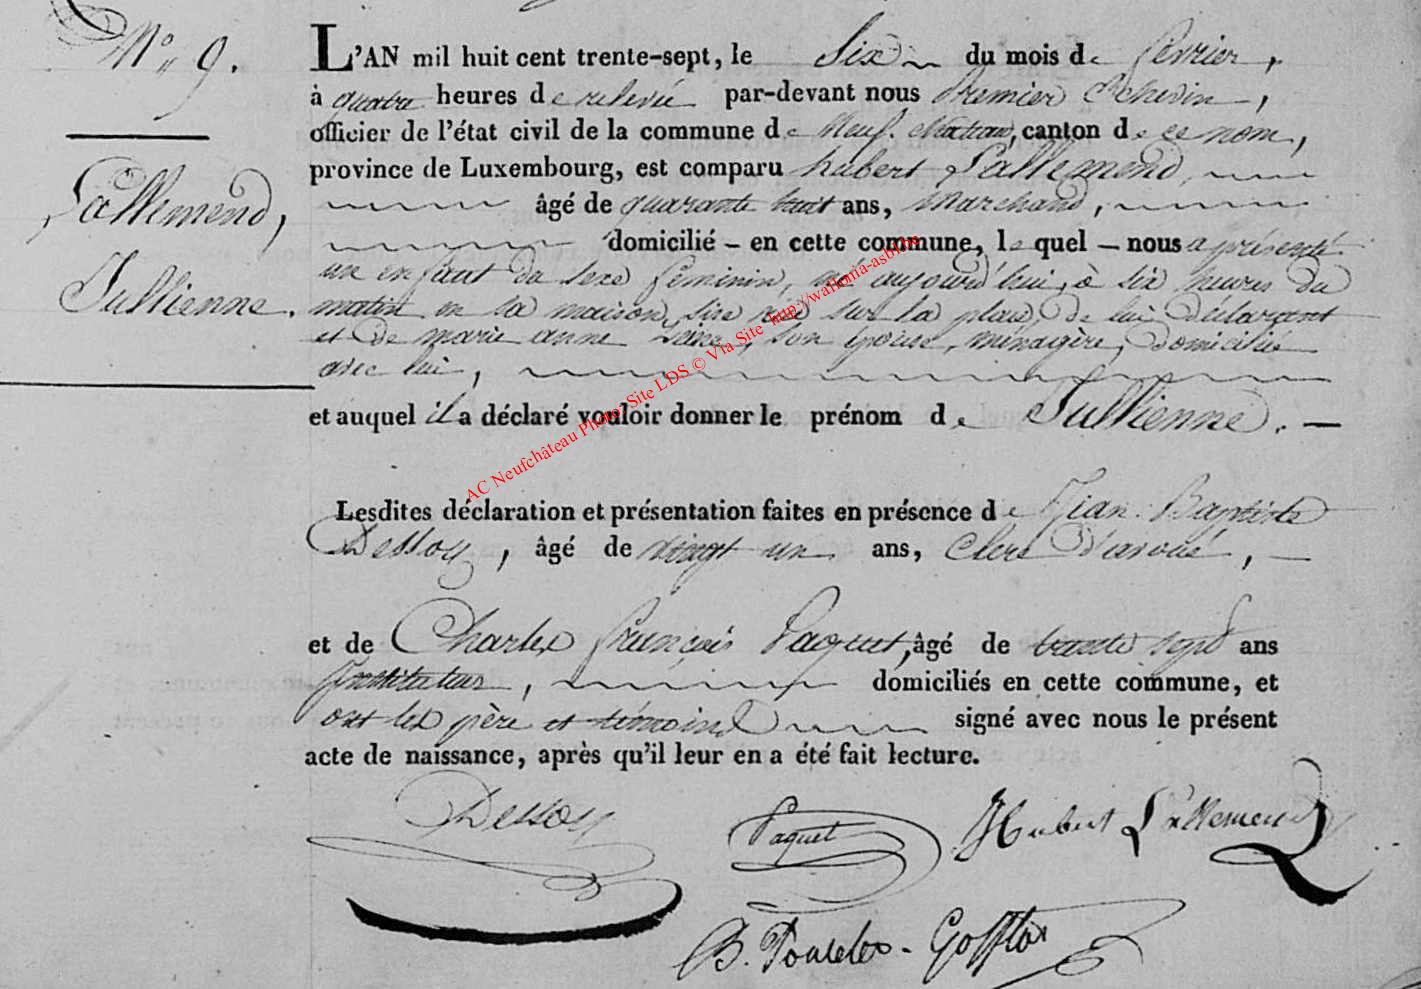 N° 9.
Lallemend,
Jullienne.
L'AN mil huit cent trente-sept, le Six du mois de fevrier,
à quatre heures de relevée par-devant nous Premier Echevin,
officier de l'état civil de la commune de Neufchateau, canton de ce nom,
province de Luxembourg, est comparu hubert Lallemend,
âgé de quarante huit ans, Marchand,
domicilié - en cette commune, lequel - nous a présenté
un enfant du sexe feminin, né aujourd'hui, à six heures du
matin en sa maison, sise sur la place, de lui déclarant
et de marie anne son épouse, ménagère, domicilié
avec lui,
et auquel il a déclaré vouloir donner le prénom de Jullienne. —
Lesdites déclaration et présentation faites en présence de Jean Baptiste
Dessoy, âgé de vingt un ans, Clerc d'avoué, —
et de Charles françois Paquet, âgé de trente sept ans
Instituteur, domiciliés en cette commune, et
ont les père et témoins signé avec nous le présent
acte de naissance, après qu'il leur en a été fait lecture.
Dessoy Paquet Hubert Lallemend
B.
AC Neufchâteau Photo: Site LDS © Via Site http://wallonia-asbl.be